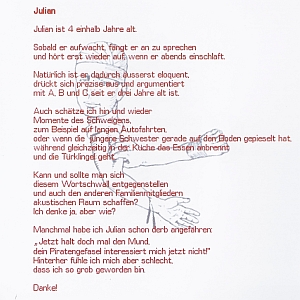 Julian
Julian ist 4 einhalb Jahre alt.
Sobald er aufwacht, fängt er an zu sprechen
und hört erst wieder auf, wenn er abends einschläft.
Natürlich ist er dadurch äusserst eloquent,
drückt sich präzise aus und argumentiert
mit A, B und C seit er drei Jahre alt ist.
Auch schätze ich hin und wieder
Momente des Schweigens,
zum Beispiel auf langen Autofahrten,
oder wenn die jüngere Schwester gerade auf den Boden gepieselt hat,
während gleichzeitig in der Küche das Essen anbrennt
und die Türklingel geht.
Kann und sollte man sich
diesem Wortschwall entgegenstellen
und auch den anderen Familienmitgliedern
akustischen Raum schaffen?
Ich denke ja, aber wie?
Manchmal habe ich Julian schon derb angefahren:
„Jetzt halt doch mal den Mund,
dein Piratengefasel interessiert mich jetzt nicht!"
Hinterher fühle ich mich aber schlecht,
dass ich so grob geworden bin.
Danke!